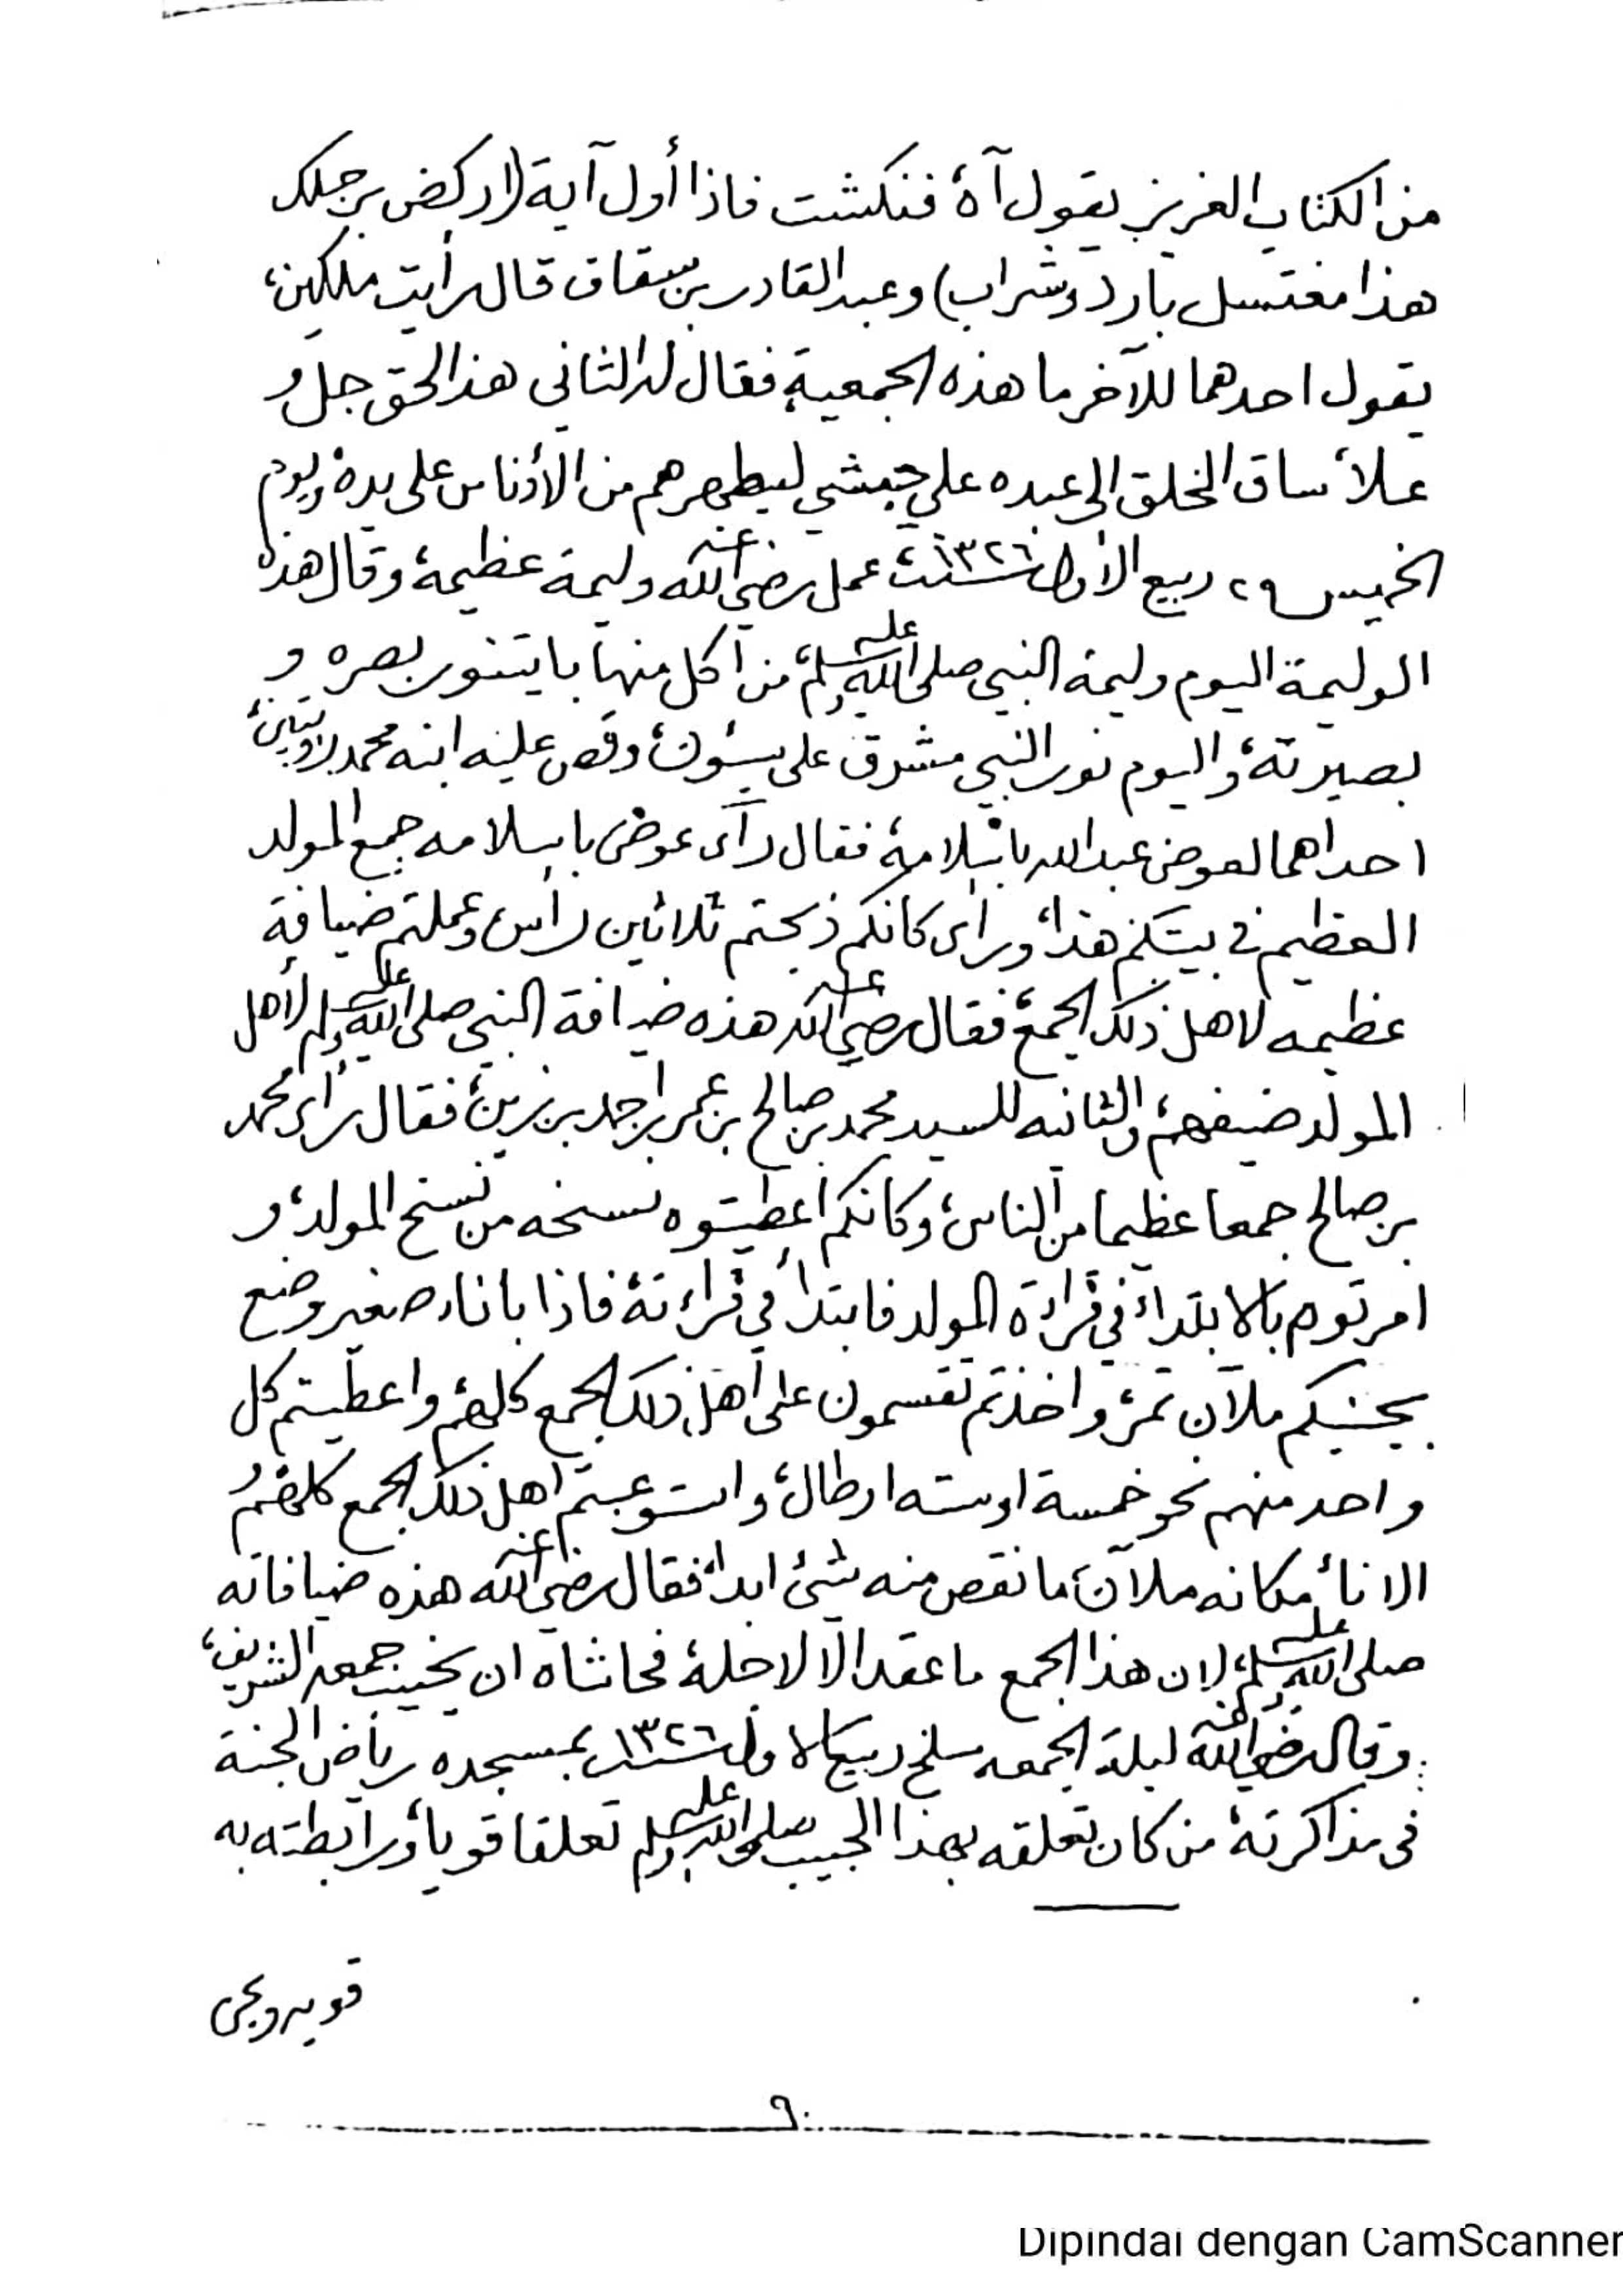 من الكتاب العزيز يقول آه فنكشت فاذا أول آية (اركض برجلك
هذا مغتسل بارد وشراب) وعبد القادر بن سقاف قال رأيت ملكين،
يقول احدهما للآخر ما هذه الجمعية فقال له الثاني هذا الحق جل و
علا، ساق الخلق الى عبده علي حبشي ليطهرهم من الأدناس على يده، ويوم
الخميس ٢٩ ربيع الأول سنة ١٣٢٦ عمل رضي الله عنه وليمة عظيمة، وقال هذه
الوليمة اليوم وليمة النبي صلى الله عليه وسلم، من اكل منها بايتنور بصره و
بصيرته، واليوم نور النبي مشرق على سيؤون، وقص عليه ابنه محمد رؤيتين،
احداهما لعوض عبد الله باسلامة، فقال رأى عوض باسلامه جمع المولد
العظيم في بيتكم هذا، ورأى كانكم ذبحتم ثلاثين رأس وعملتم ضيافة
عظيمه لاهل ذلك الجمع، فقال رضي الله عنه هذه ضيافة النبي صلى الله عليه وسلم لأهل
المولد ضيفهم، والثانيه للسيد محمد بن صالح بن عمر بن احمد بن زين، فقال رأى محمد
بن صالح جمعا عظيما من الناس، وكانكم اعطيتوه نسخه من نسخ المولد، و
امرتوه بالابتداء في قراءة المولد فابتدأ في قراءته، فاذا باناء صغير وضع
بجنبكم ملآن تمر، واخذتم تقسمون على أهل ذلك الجمع كلهم، واعطيتم كل
واحد منهم نحو خمسة اوسته ارطال، واستوعبتم اهل ذلك الجمع كلهم، و
الاناء مكانه ملآن، ما نقص منه شئ ابدا، فقال رضي الله عنه هذه ضيافاته
صلى الله عليه وسلم، لان هذا الجمع ما عقد الا لاجله، فحاشاه ان يخيب جمعه الشريف،
وقال رضي الله عنه ليلة الجمعه سلخ ربيع الاول سنة ١٣٢٦ بمسجده رياض الجنة
في مذاكرته، من كان تعلقه بهذا الحبيب صلى الله عليه وسلم تعلقا قويا، ورابطته به
قويه
٩
Dipindai dengan CamScanner